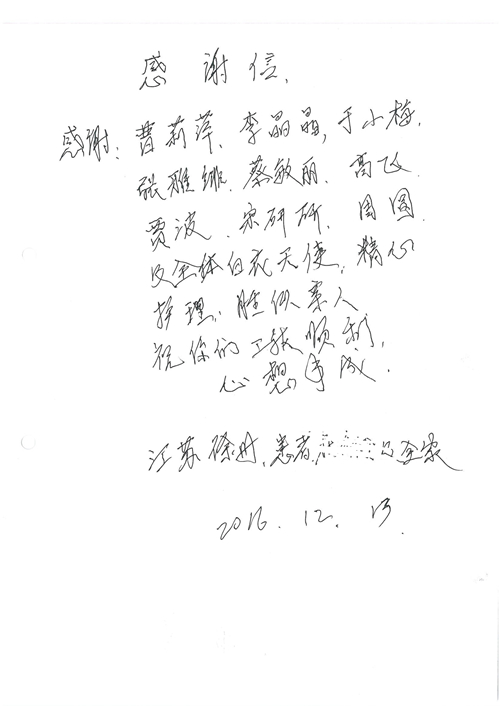 感谢信.
感谢:曹莉萍、李晶晶,于小梅.
张雅娜.蔡敏丽.高飞
贾波.宋研研.周圆.
及全体白衣天使,精心
护理,胜似亲人
祝你们工作顺利,
心想事成.
江苏徐州,患者 全家
2016.12.13.